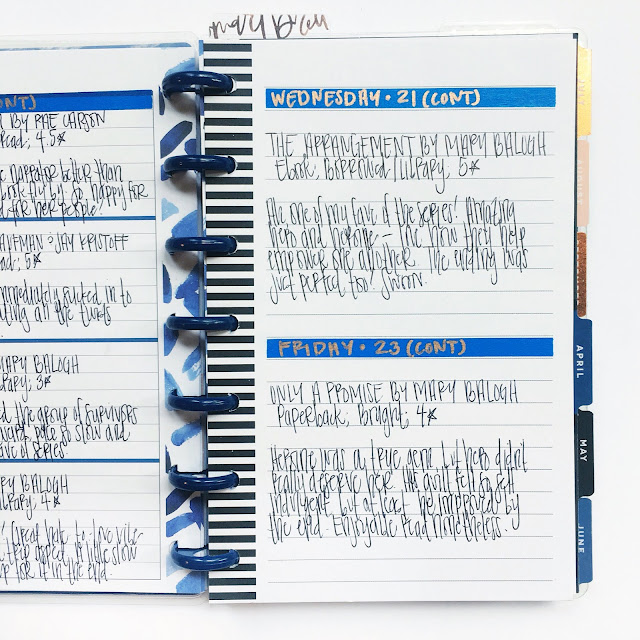 mary
ONT)
BY RAE CARSON
read, 4.5★
narrator better than
so happy for
her people!
JAY KRISTOFF
ead; 5★
immediately sucked in to
all the twists
MARY BALOGH
rary; 3★
the group of survivors
slow and
of series.
RY BALOGH
library; 4★
great hate-to-love vibe
trip aspect. A little slow
up for it in the end.
WEDNESDAY • 21 (CONT)
THE ARRANGEMENT BY MARY BALOGH
Ebook, Borrowed/Library, 5★
Ah, one of my favs of the series! Amazing
hero and heroine - love how they help
empower one another. The ending was
just perfect too! Swoon.
FRIDAY • 23 (CONT)
ONLY A PROMISE BY MARY BALOGH
Paperback; Bought; 4★
Heroine was a true gem, but hero didn't
really deserve her. His guilt felt so self
indulgent, but at least he improved by
the end. Enjoyable read nonetheless.
APRIL
MAY
JUNE